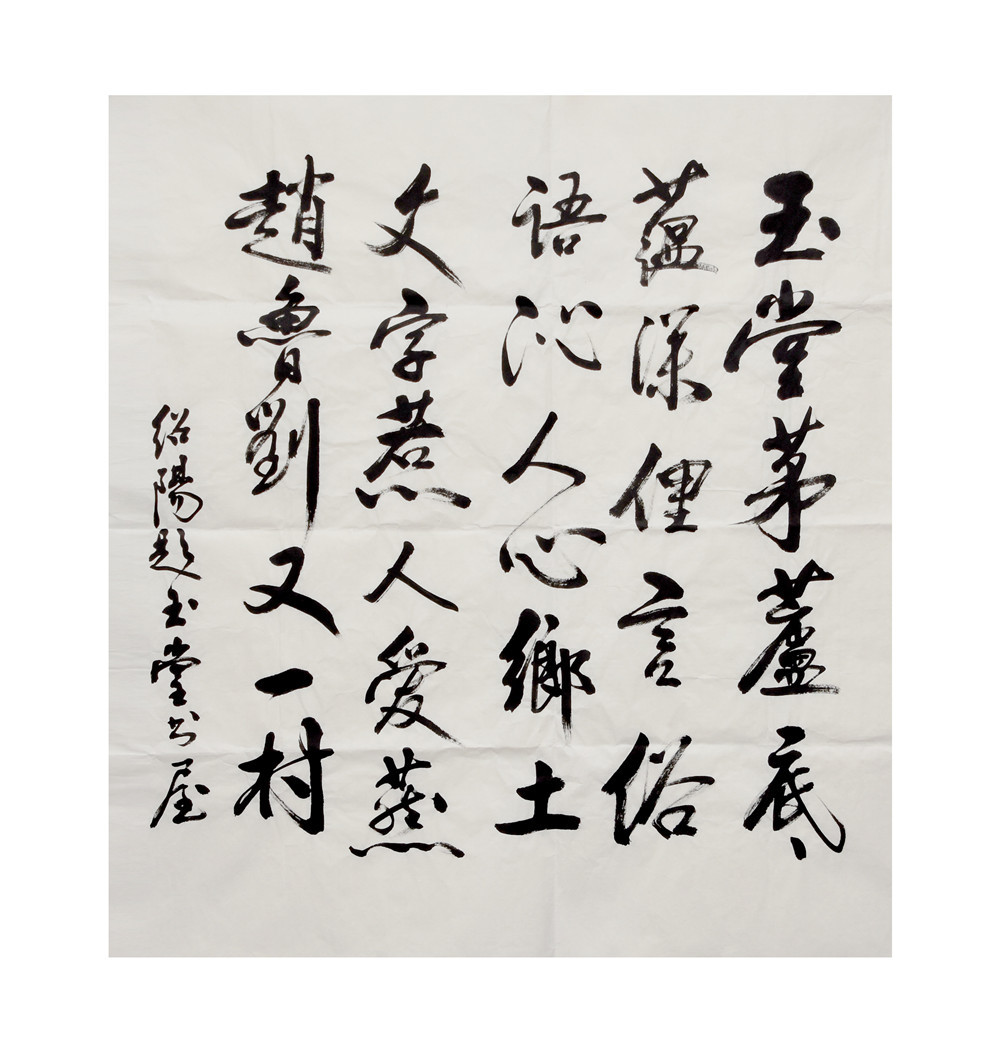 玉堂茅蘆底
蕴深俚言俗
语沁人心鄉土
文字惹人爱燕
趙魯劉又一村
绍陽题玉堂书屋